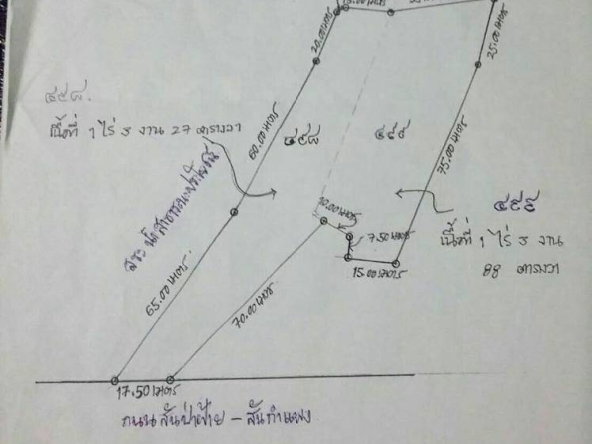 20.00 เมตร
25.00 เมตร
๔๙๘.
เนื้อที่ 1 ไร่ 3 งาน 27 ตารางวา
60.00 เมตร
๔๙๘
๔๙๙
75.00 เมตร
สระน้ำสาธารณะประโยชน์
10.00 เมตร
7.50 เมตร
๔๙๙
เนื้อที่ 1 ไร่ 3 งาน
88 ตารางวา
15.00 เมตร
65.00 เมตร
70.00 เมตร
17.50 เมตร
ถนนสันป่าฝ้าย - สันกำแพง